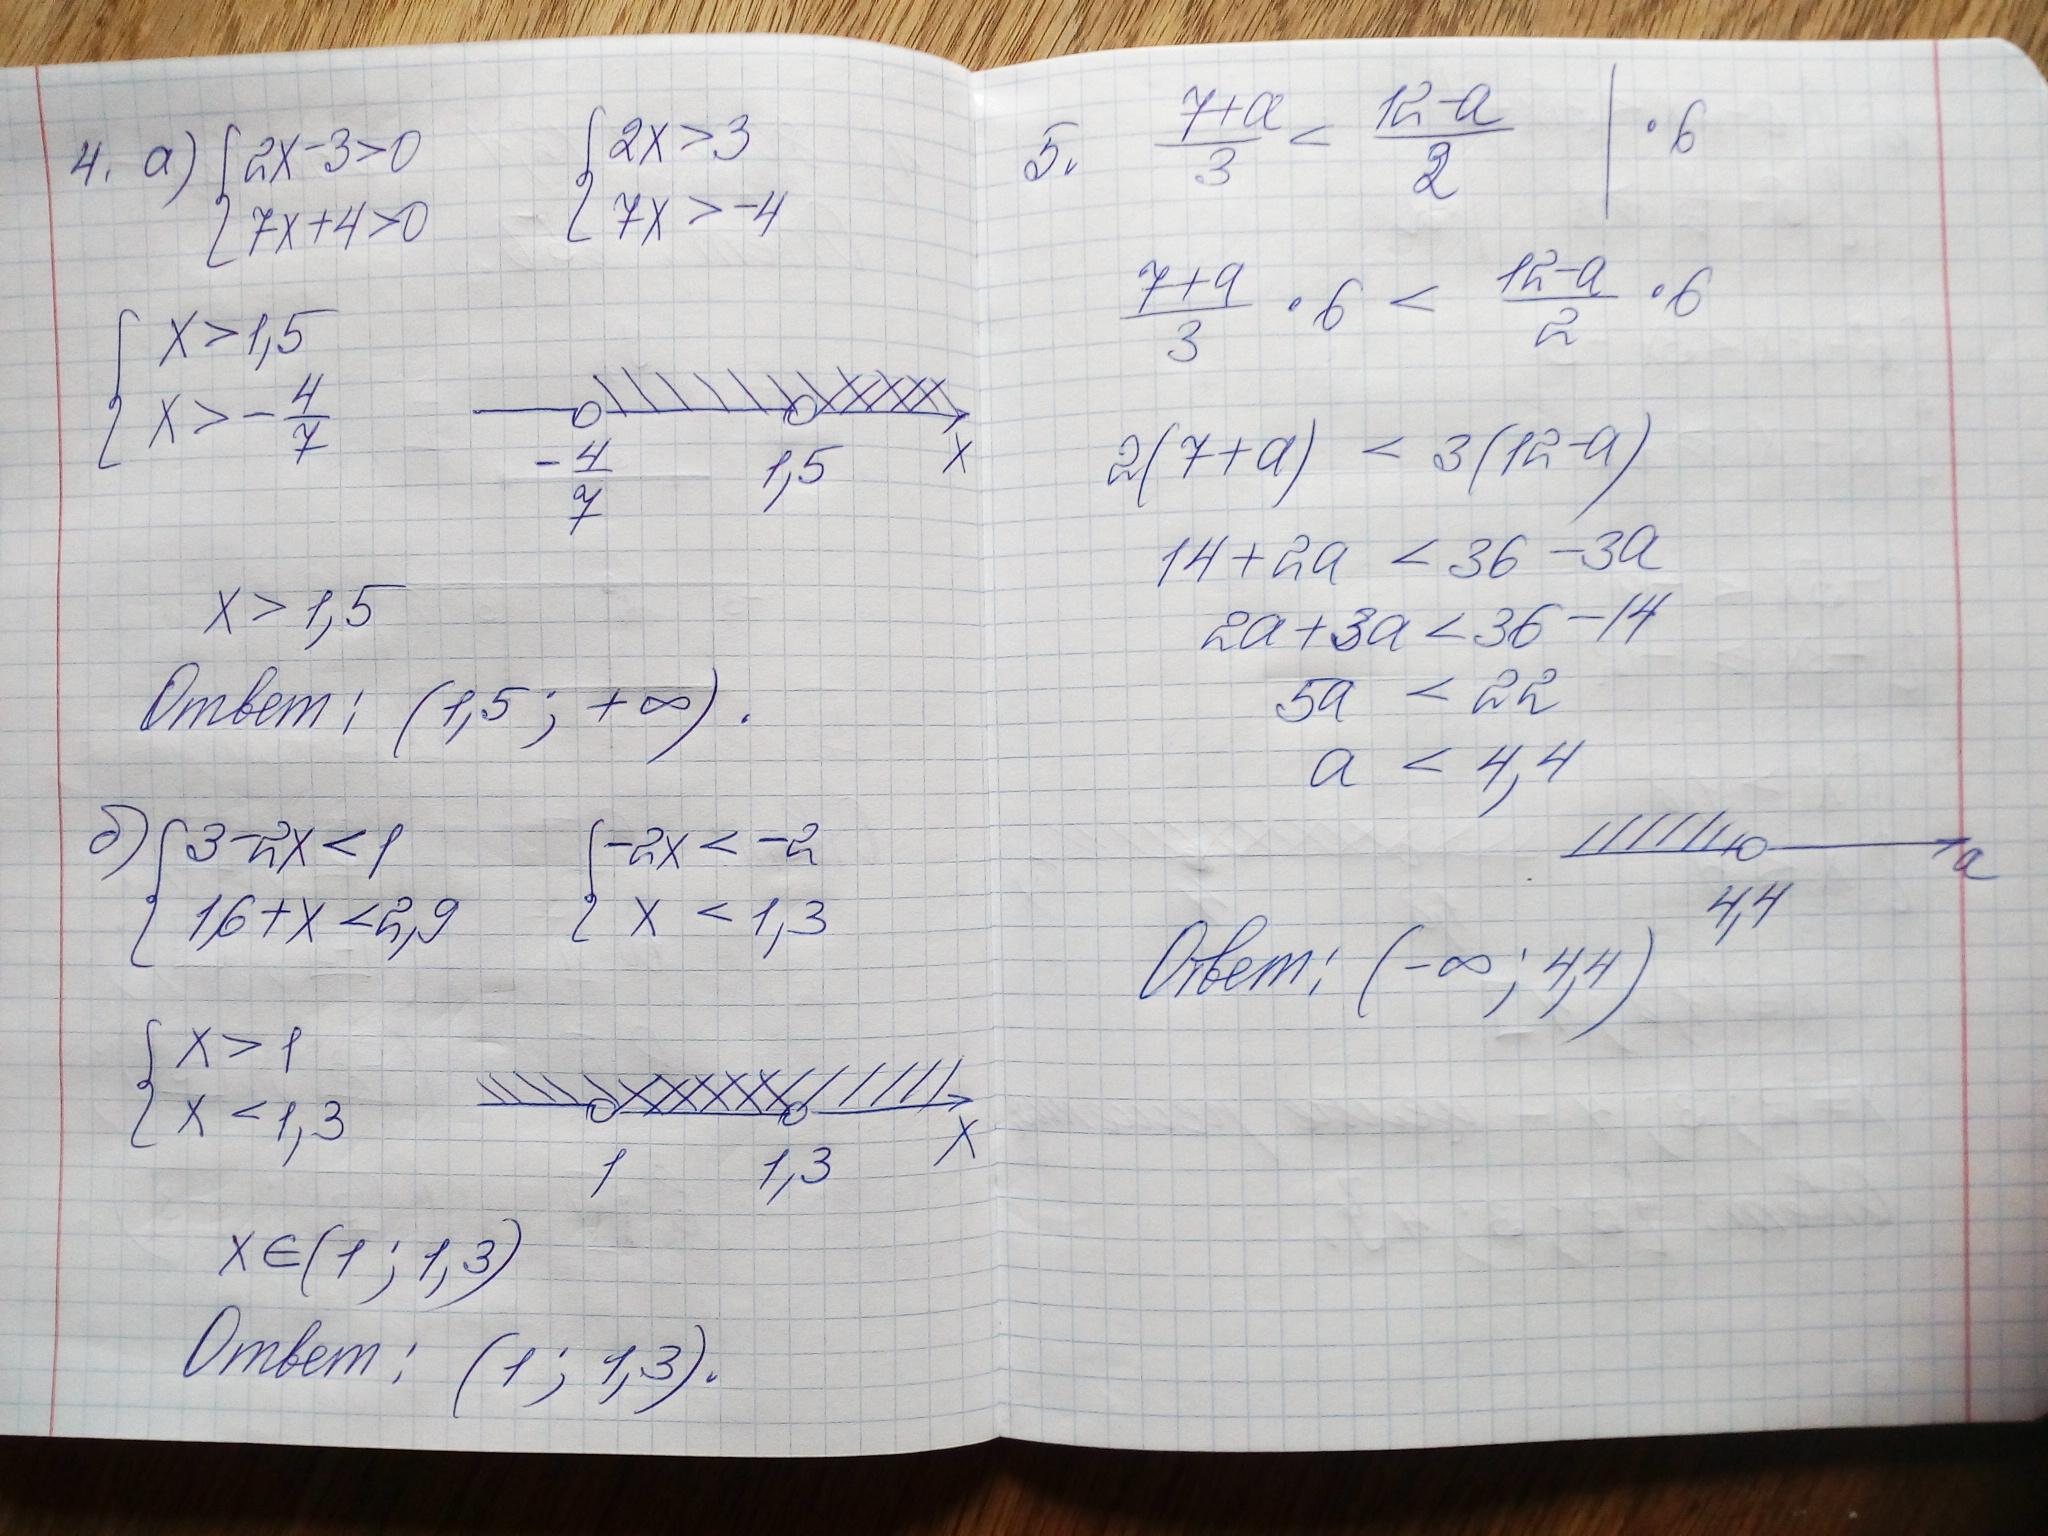 4. а) { 2x-3>0      { 2x>3
7x+4>0      7x>-4
{ x>1,5
x>-4/7
-4/7   1,5   x
x>1,5
Ответ: (1,5; +∞).
б) { 3-2x<1      { -2x<-2
1,6+x<2,9      x<1,3
{ x>1
x<1,3
1   1,3   x
x∈(1; 1,3)
Ответ: (1; 1,3).
5. (7+a)/3 < (12-a)/2 | ·6
(7+a)/3 ·6 < (12-a)/2 ·6
2(7+a) < 3(12-a)
14+2a < 36-3a
2a+3a<36-14
5a < 22
a < 4,4
4,4   a
Ответ: (-∞; 4,4)